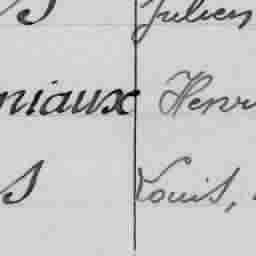 s Julien
niaux Henri
s Louis,